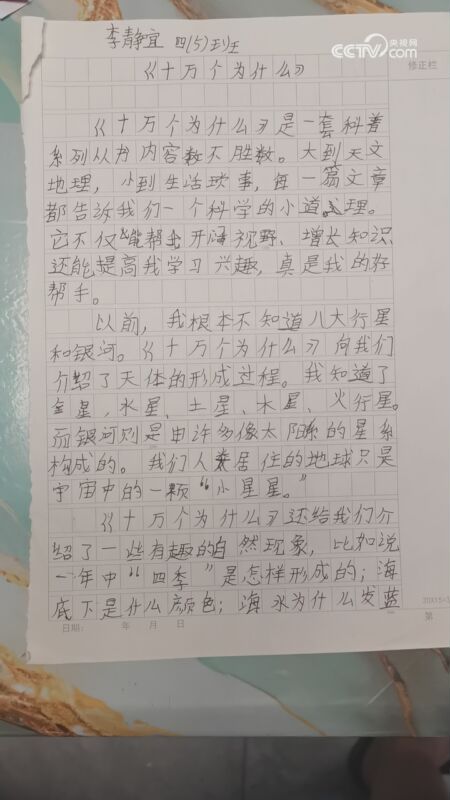 CCTV.com 央视网
李静宜 四(5)班
修正栏
《十万个为什么》
《十万个为什么》是一套科普
系列从书内容数不胜数。大到天文
地理，小到生活琐事，每一篇文章
都告诉我们一个科学的小道理。
它不仅能帮我开阔视野、增长知识
还能提高我学习兴趣，真是我的好
帮手。
以前，我根本不知道八大行星
和银河。《十万个为什么》向我们
介绍了天体的形成过程。我知道了
金星，水星、土星、木星、火行星。
而银河则是由许多像太阳系的星系
构成的。我们人类居住的地球只是
宇宙中的一颗“小星星。”
《十万个为什么》还给我们介
绍了一些有趣的自然现象，比如说
一年中“四季”是怎样形成的；海
底下是什么颜色；海水为什么发蓝
日期： 年 月 日
第